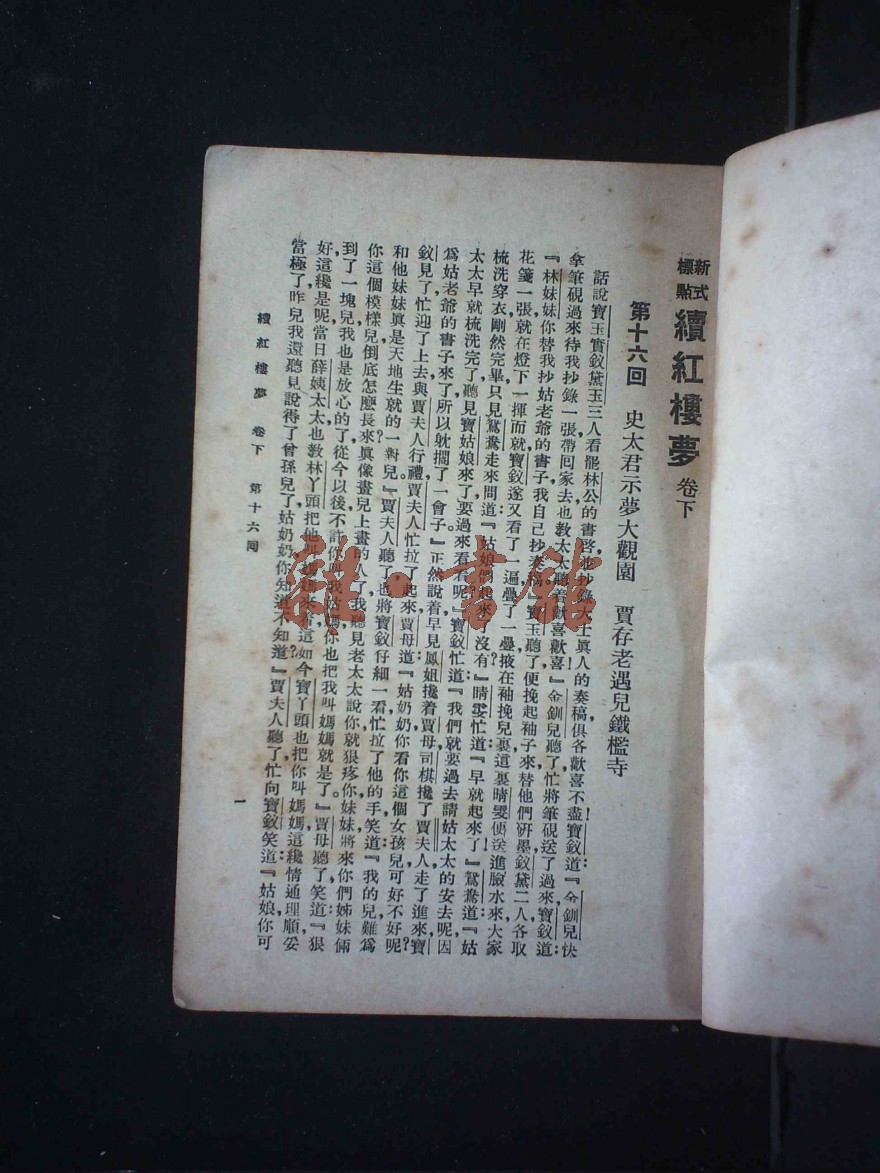 新式標點 續紅樓夢 卷下
第十六回 史太君示夢大觀園 賈存老遇兒鐵檻寺
話說寶玉寶釵黛玉三人看罷林公的書啓並抄錄大士眞人的奏稿俱各歡喜不盡寶釵道:『金釧兒快
拿筆硯過來待我抄錄一張帶回家去也敎太太聽着歡喜歡喜!』金釧兒聽了,忙將筆硯送了過來,寶釵道:
『林妹妹你替我抄姑老爺的書子,我自己抄奏稿。』寶玉聽了,便挽起袖子來,替他們硏墨,釵黛二人各取
花箋一張,就在燈下一揮而就,寶釵遂又看了一遍,疊了一疊,掖在袖挽兒裏,這裏晴雯便送進臉水來,大家
梳洗穿衣,剛然完畢,只見鴛鴦走來問道:『姑娘們起來了沒有?』晴雯忙道:『早就起來了。』鴛鴦道:『姑
太太早就梳洗完了,聽見寶姑娘來了,要過來看看呢。』寶釵忙道:『我們就要過去請姑太太的安去呢,因
爲姑老爺的書子來了,所以躭擱了一會子。』正然說着,早見鳳姐攙着賈母,司棋攙了賈夫人,走了進來,寶
釵見了,忙迎了上去,與賈夫人行禮,賈夫人忙拉了起來,賈母道:『姑奶奶,你看你這個女孩兒可好不好呢?
和他妹妹眞是天地生就的一對兒。』賈夫人聽了,也將寶釵仔細一看,忙拉了他的手,笑道:『我的兒,難爲
你這個模樣兒,倒底怎麼長來,眞像畫兒上畫的人了,我聽見老太太說,你就狠疼你妹妹,將來你們姊妹倆
到了一塊兒,我也是放心的了,從今以後,不許你叫我姑媽,你也把我叫媽媽就是了。』賈母聽了,笑道:『狠
好,這纔是呢,當日薛姨太太也敎林丫頭把他叫媽媽來着,這如今寶丫頭也把你叫媽媽,這纔情通理順,妥
當極了,昨兒我還聽見說得了曾孫兒了,姑奶奶,你知道不知道?』賈夫人聽了,忙向寶釵笑道:『姑娘,你可
續紅樓夢 卷下 第十六回
一
雜·書館